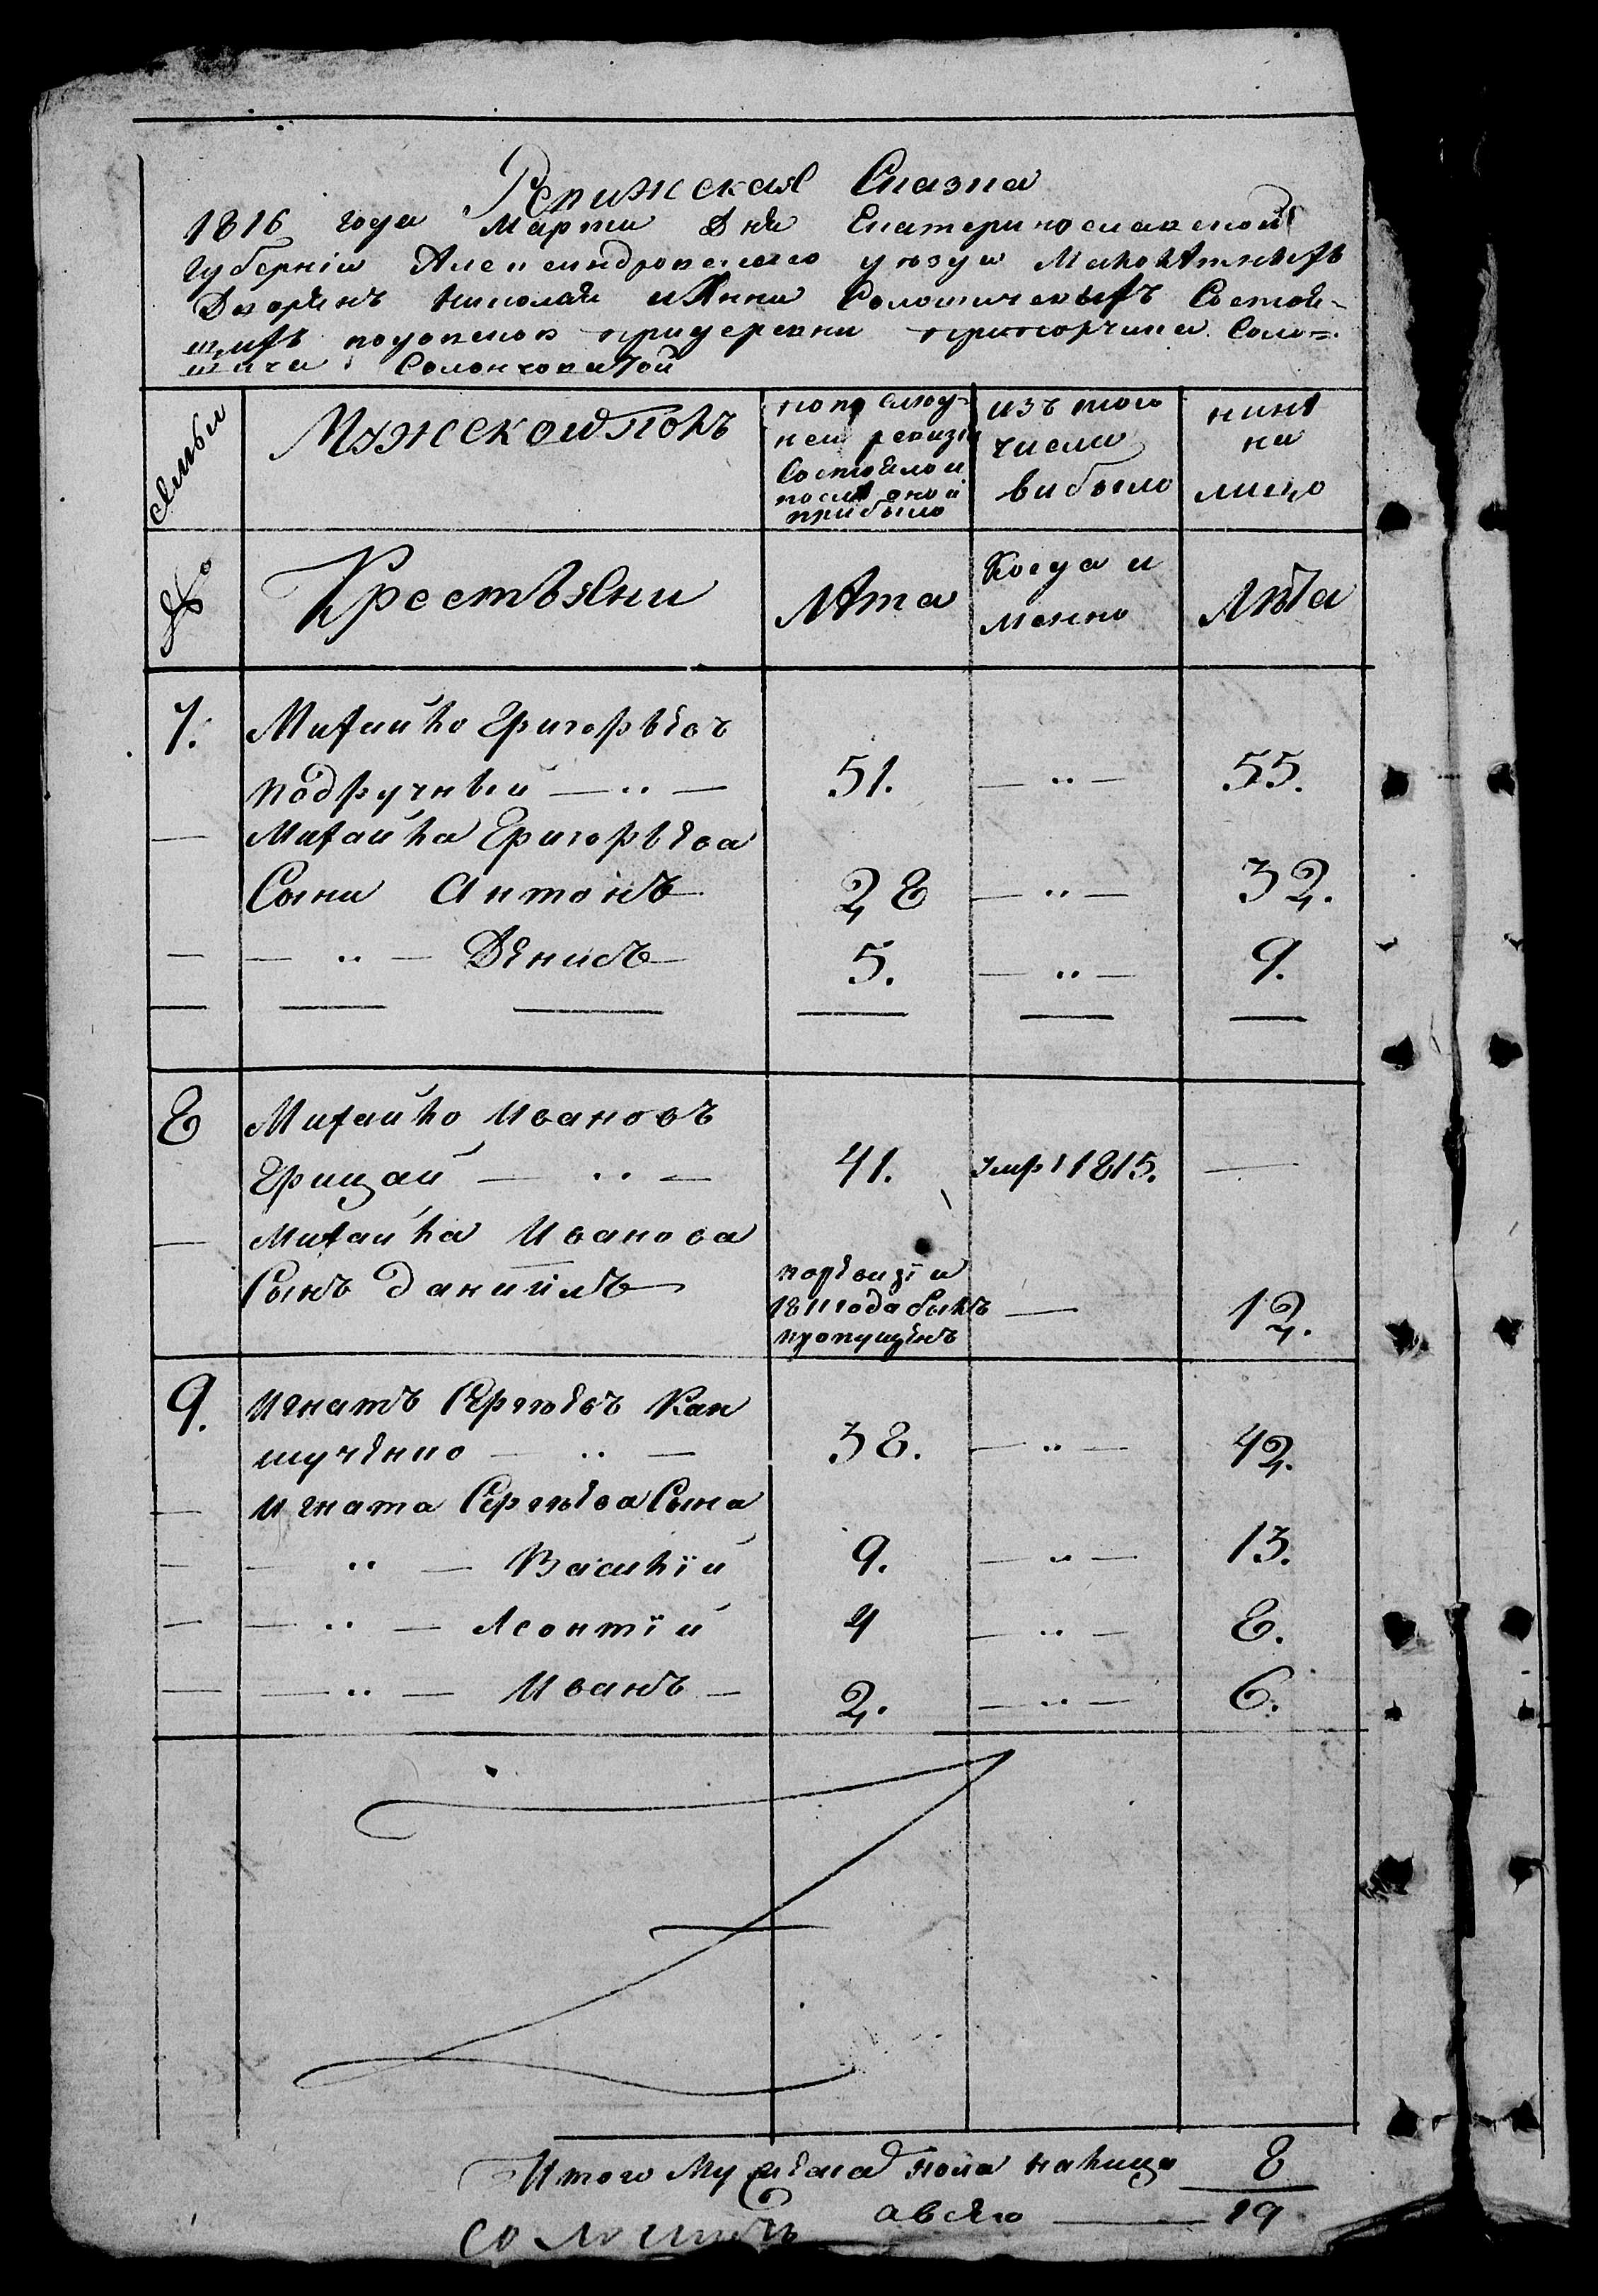 Ревижская Сказка
1816 года Марта Дня Екатеринославской
Губерніи Александровского уѣзда Малолѣтныхъ
Дворянъ Николая и Анны Солошичевыхъ Состоя-
щихъ подопекою придеревни прапорчика Соло-
шича Солончоватой
Семьи
Мужескои Полъ
по послѣд-
ней ревизіи
Состояло и
послѣ оной
прибыло
изъ того
числа
выбыло
нынѣ
на
лицо
№
Крестьяни
Лѣта
Когда и
менно
Лѣта
7. Михайло Григорьевъ
подручный — ·· — 51. — ·· — 55.
— Михайла Григорьева
Сыни Антонъ 28 — ·· — 32.
— — ·· — Денисъ 5. — ·· — 9.
8 Михайло Ивановъ
Грицай — ·· — 41. умръ 1815. —
— Михайла Иванова
Сынъ Даниилъ поревизіи
1811 года былъ — 12.
пропущенъ
9. Игнатъ Сергѣевъ Кан
шученко — ·· — 38. — ·· — 42.
— Игната Сергѣева Сына
— — ·· — Василій 9. — ·· — 13.
— — ·· — Леонтій 4 — ·· — 8.
— — ·· — Иванъ — 2. — ·· — 6.
Итого Мужеска пола налица 8
авсего — 19
Солошичъ